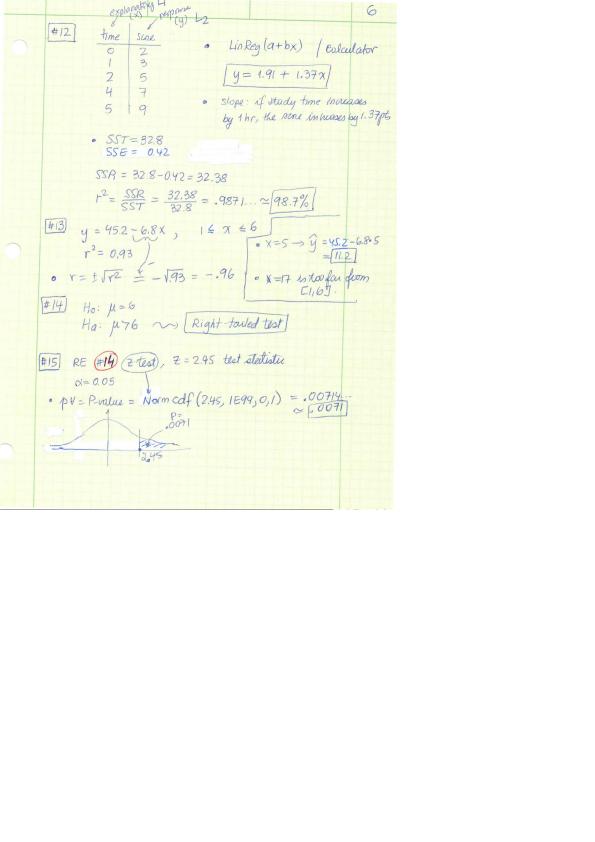 explanatory L1
(x) response
(y) L2
6
#12
time score
0 2
1 3
2 5
4 7
5 9
• LinReg(a+bx) / calculator
y = 1.91 + 1.37x
• slope: if study time increases
by 1hr, the score increases by 1.37pts
• SST = 32.8
SSE = 0.42
SSR = 32.8 - 0.42 = 32.38
r² = SSR/SST = 32.38/32.8 = .9871... ≈ 98.7%
#13
y = 45.2 - 6.8x , 1 ≤ x ≤ 6
r² = 0.93
• r = ±√r² = -√.93 = -.96
• x=5 → ŷ = 45.2 - 6.8•5
= 11.2
• x=17 is too far from
[1,6].
#14
Ho: μ = 6
Ha: μ > 6 Right-tailed test
#15 RE #14 Z test, Z = 2.45 test statistic
α = 0.05
• pV = P-value = Normcdf(2.45, 1E99, 0, 1) = .00714...
≈ .0071
P=
.0071
2.45